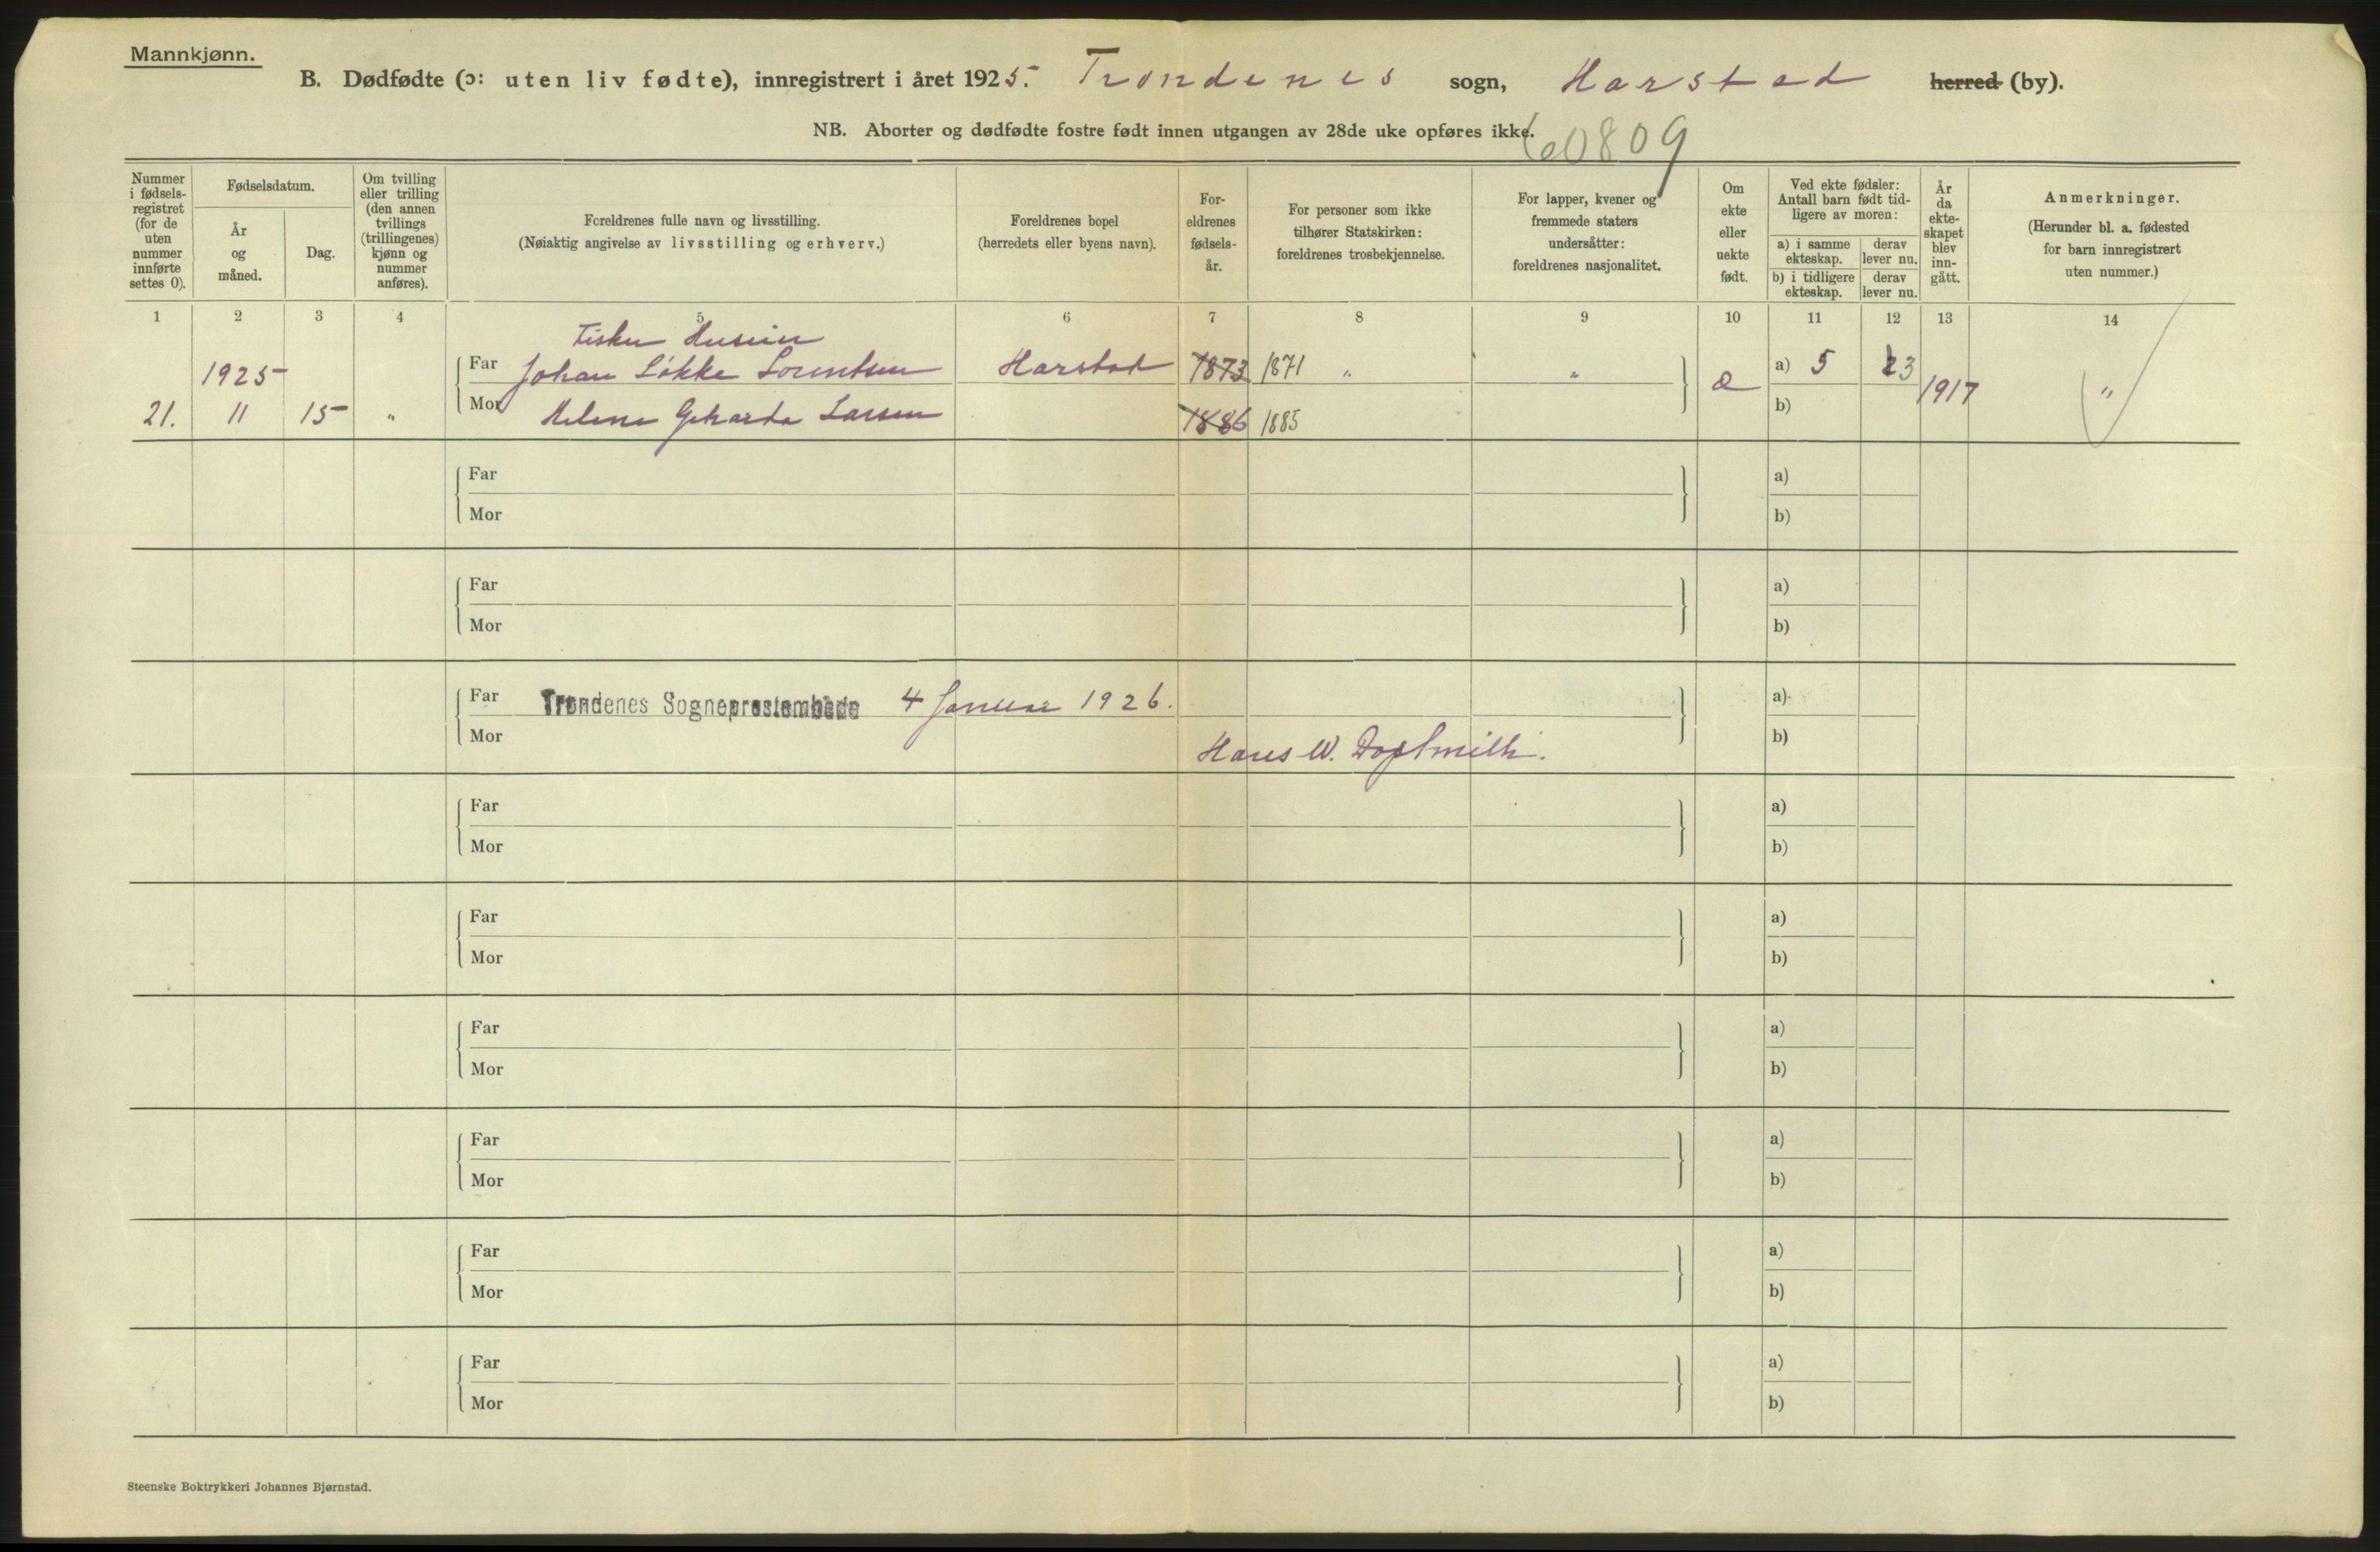 Mannkjønn.
B. Dødfødte (ɔ: uten liv fødte), innregistrert i året 1925. Trondenes sogn, Harstad herred (by).
NB. Aborter og dødfødte fostre født innen utgangen av 28de uke opføres ikke.
60809
Nummer i fødsels-registret (for de uten nummer innførte settes 0).
Fødselsdatum.
År og måned.
Dag.
Om tvilling eller trilling (den annen tvillings (trillingenes) kjønn og nummer anføres).
Foreldrenes fulle navn og livsstilling.
(Nøiaktig angivelse av livsstilling og erhverv.)
Foreldrenes bopel
(herredets eller byens navn).
For-eldrenes fødsels-år.
For personer som ikke tilhører Statskirken: foreldrenes trosbekjennelse.
For lapper, kvener og fremmede staters undersåtter: foreldrenes nasjonalitet.
Om ekte eller uekte født.
Ved ekte fødsler: Antall barn født tid-ligere av moren:
a) i samme ekteskap.
derav lever nu.
b) i tidligere ekteskap.
derav lever nu.
År da ekte-skapet blev inn-gått.
Anmerkninger.
(Herunder bl. a. fødested for barn innregistrert uten nummer.)
1 2 3 4 5 6 7 8 9 10 11 12 13 14
Fisker
1925
Far Johan Løkke Lorentsen Harstad 1873 1871 " " a) 5 3
21. 11 15 " Mor Helene Larsen 1886 1885 b) 1917 "
Far a)
Mor b)
Far a)
Mor b)
Far Trondenes Sogneprestembede 4 Januar 1926. a)
Mor Hans W. b)
Far a)
Mor b)
Far a)
Mor b)
Far a)
Mor b)
Far a)
Mor b)
Far a)
Mor b)
Far a)
Mor b)
Steenske Boktrykkeri Johannes Bjørnstad.